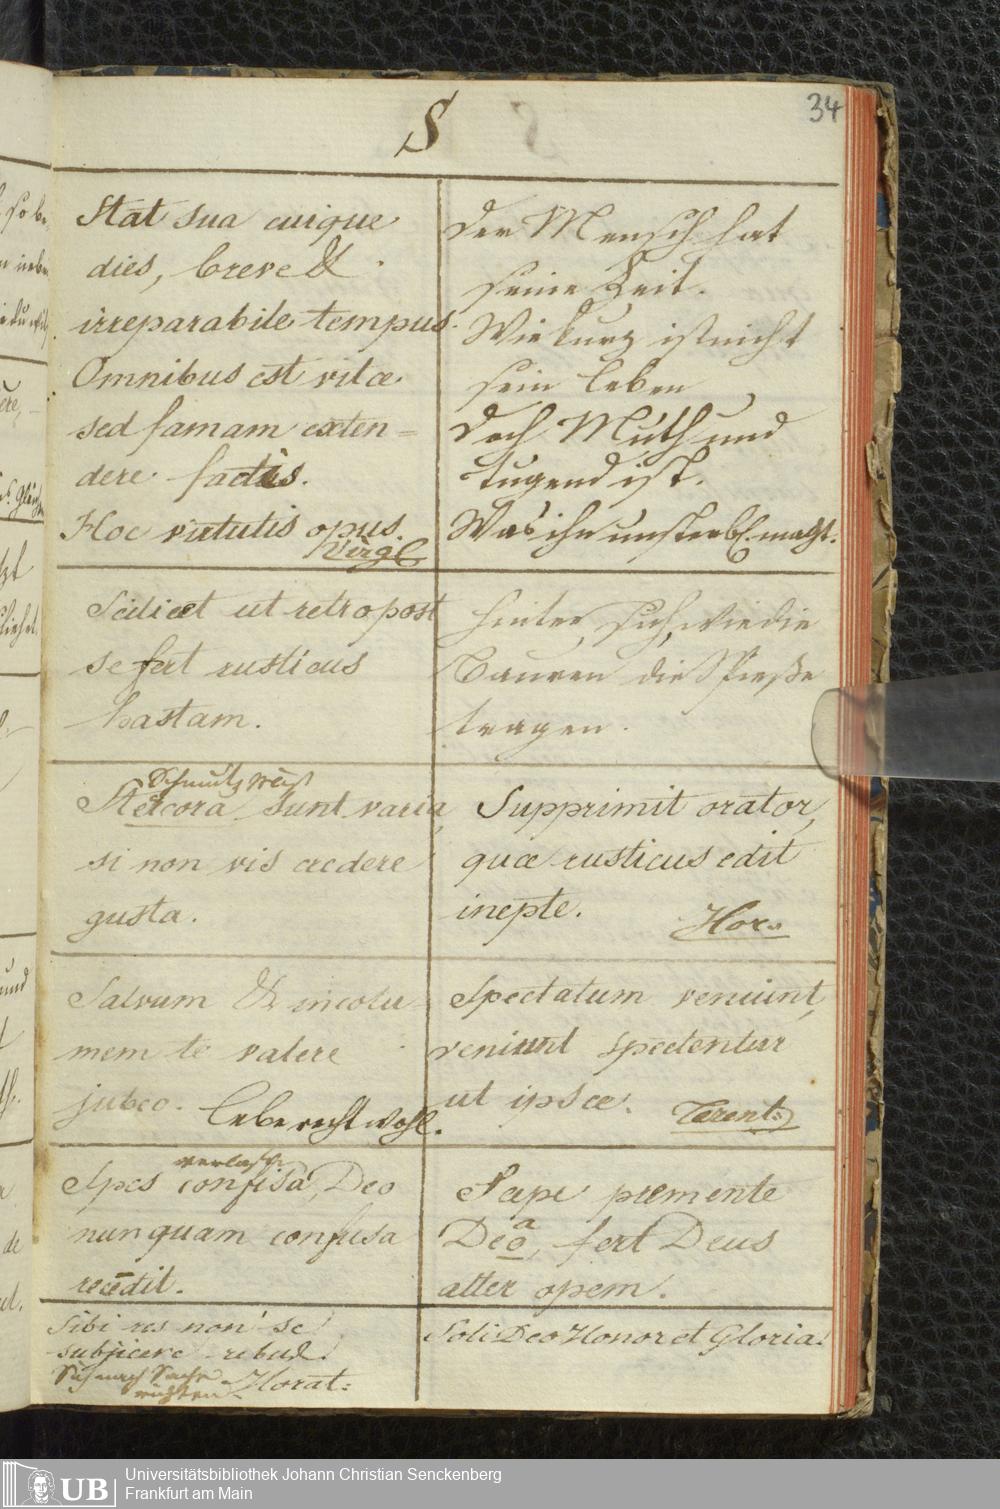 34
S
Stat sua cuique
dies, breve &
irreparabile tempus.
Omnibus est vitæ
sed famam exten=
dere factis.
Hoc virtutis opus.
Virgl
Der Mensch hat
seine Zeit.
Wie kurz ist nicht
sein Leben
Doch Muth und
Tugend ist.
Was ihn unsterbl. macht.
Scilicet ut retro post
se fert rusticus
hastam.
Hinter sich, wie die
Bauren die Spieße
tragen.
Stercora sunt varia,
si non vis credere
gusta.
Supprimit orator,
quæ rusticus edit
inepte.
Hor.
Salvum & incolu
mem te valere
jubeo.
Lebe recht wohl.
Spectatum veniunt,
veniunt spectentur
ut ipsæ.
Terent:
Spes confisa Deo
nunquam confusa
recedit.
Sæpe premente
Deo, fert Deus
a
alter opem.
Sibi res non se
subjicere rebus.
Sich nach Sache
richten
Horat:
Soli Deo Honor et Gloria!
UB
Universitätsbibliothek Johann Christian Senckenberg
Frankfurt am Main